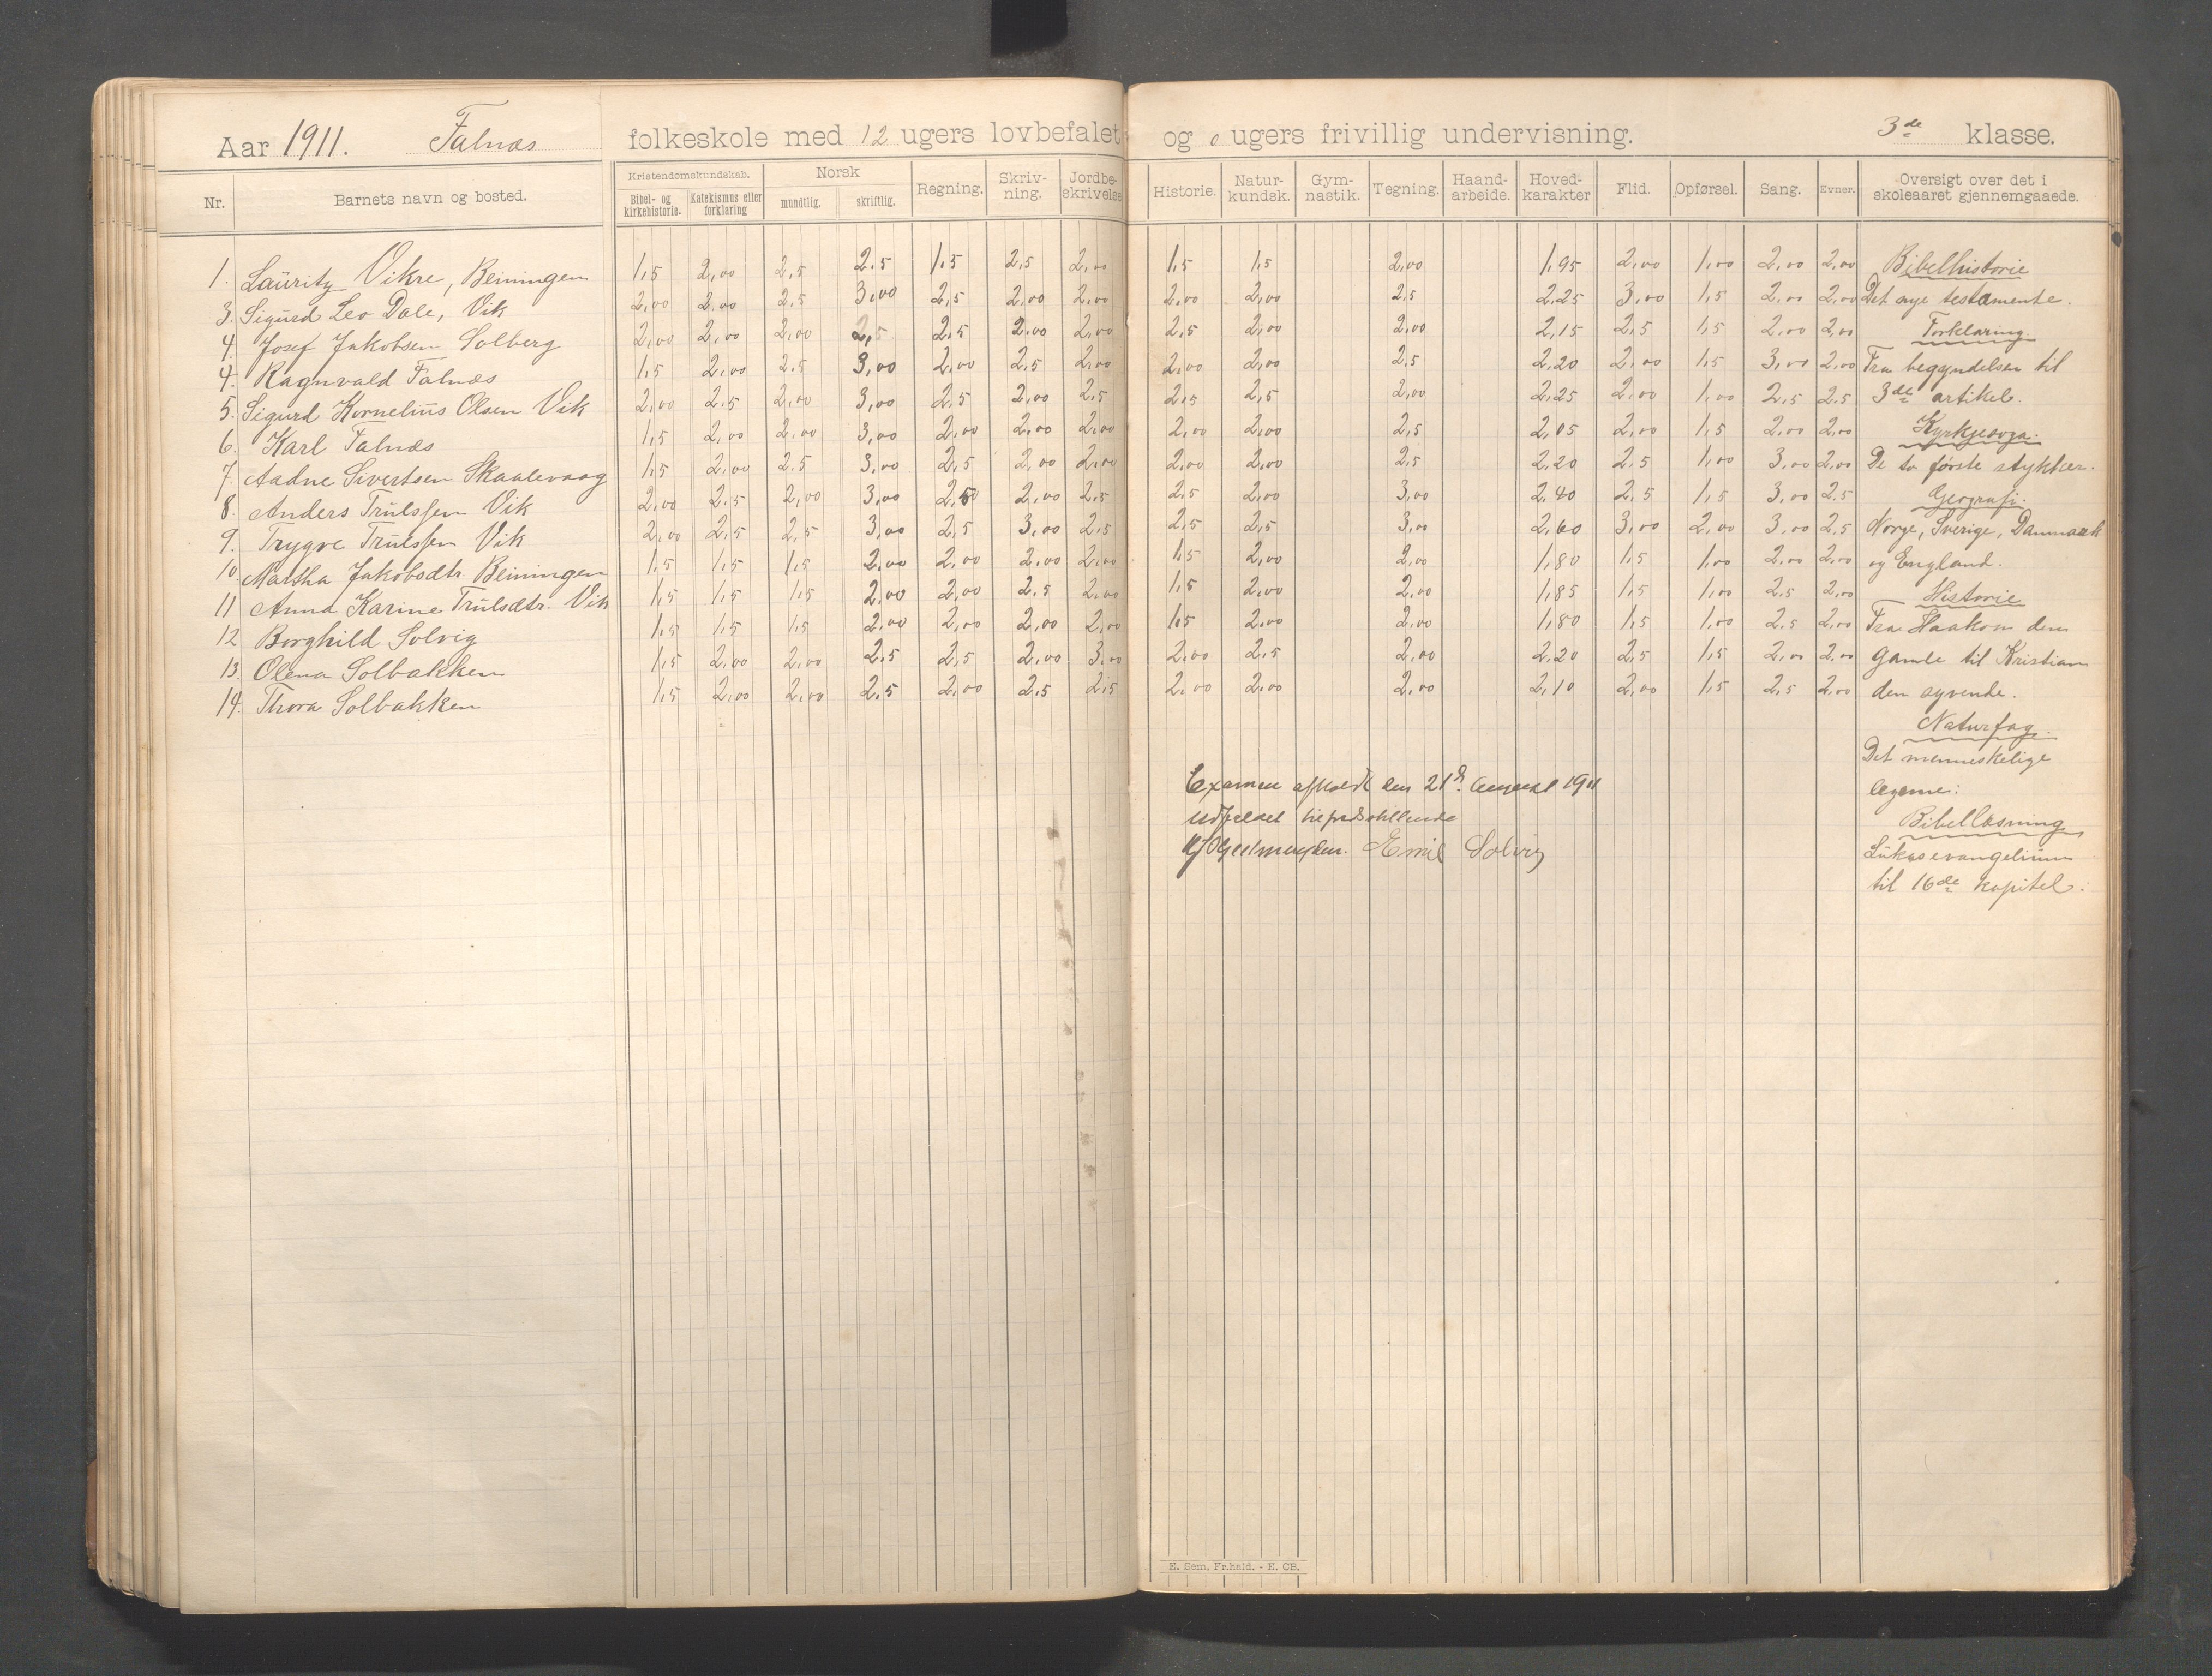 Aar 1911. Falnæs folkeskole med 12 ugers lovbefalet og 0 ugers frivillig undervisning. 3de klasse.
Nr. Barnets navn og bosted. Kristendomskundskab. Bibel- og kirkehistorie. Katekismus eller forklaring Norsk mundtlig. skriftlig. Regning. Skriv-ning. Jordbe-skrivelse Historie. Natur-kundsk. Gym-nastik. Tegning. Haand-arbeide. Hoved-karakter Flid. Opførsel. Sang. Evner. Oversigt over det i skoleaaret gjennemgaaede.
1. Lauritz Vikre, Beiningen 1,5 2,00 2,5 2,5 1,5 2,5 2,00 1,5 1,5 2,00 1,95 2,00 1,00 2,00 2,00 Bibelhistorie
3. Sigurd Leo Dale, Vik 2,00 2,00 2,5 3,00 2,5 2,00 2,00 2,00 2,00 2,5 2,25 3,00 1,5 2,00 2,00 Det nye testamente.
4. Josef Jakobsen Solberg 2,00 2,00 2,00 2,5 2,5 2,00 2,00 2,5 2,00 2,00 2,15 2,5 1,5 2,00 2,00 Forklaring.
4. Ragnvald Falnæs 1,5 2,00 2,5 3,00 2,00 2,5 2,00 2,00 2,00 2,5 2,20 2,00 1,5 3,00 2,00 Fra begyndelsen til
5. Sigurd Kornelius Olsen Vik 2,00 2,5 2,00 3,00 2,5 2,00 2,5 2,5 2,5 2,00 2,25 2,00 1,00 2,5 2,5 3de artikel.
6. Karl Falnæs 1,5 2,00 2,00 3,00 2,00 2,00 2,00 2,00 2,00 2,5 2,05 2,00 1,5 2,00 2,00 Kyrkjesoga.
7. Aadne Sivertsen Skaalevaag 1,5 2,00 2,5 3,00 2,5 2,00 2,00 2,00 2,00 2,5 2,20 2,5 1,00 3,00 2,00 De to første stykker.
8. Anders Trulssen Vik 2,00 2,5 2,00 3,00 2,50 2,00 2,5 2,5 2,00 3,00 2,40 2,5 1,5 3,00 2,5 Geografi.
9. Trygve Trulssen Vik 2,00 2,5 2,5 3,00 2,5 3,00 2,5 2,5 2,5 3,00 2,60 3,00 2,00 3,00 2,5 Norge, Sverige, Danmark
10. Martha Jakobsdtr. Beiningen 1,5 1,5 1,5 2,00 2,00 2,00 2,00 1,5 2,00 2,00 1,80 1,5 1,00 2,00 2,00 og England.
11 Anna Karine Trulsdtr. Vik 1,5 1,5 1,5 2,00 2,00 2,5 2,00 1,5 2,00 2,00 1,85 1,5 1,00 2,5 2,00 Historie
12 Borghild Solvig 1,5 1,5 1,5 2,00 2,00 2,00 2,00 1,5 2,00 2,00 1,80 1,5 1,00 2,5 2,00 Fra Haakon den
13. Olena Solbakken 1,5 2,00 2,00 2,5 2,5 2,00 3,00 2,00 2,5 2,00 2,20 2,5 1,5 2,00 2,00 gamle til Kristian
14. Thora Solbakken 1,5 2,00 2,00 2,5 2,00 2,5 2,5 2,00 2,00 2,00 2,10 2,00 1,5 2,5 2,00 den syvende.
Naturfag.
Det menneskelige
legeme.
Bibellæsning
Lukasevangelium
til 16de kapitel.
Examen afholdt den 21d. August 1911
udfaldet tilfredsstillende
Emil Solvig
E. Sem. Fr.hald. - E. CB.